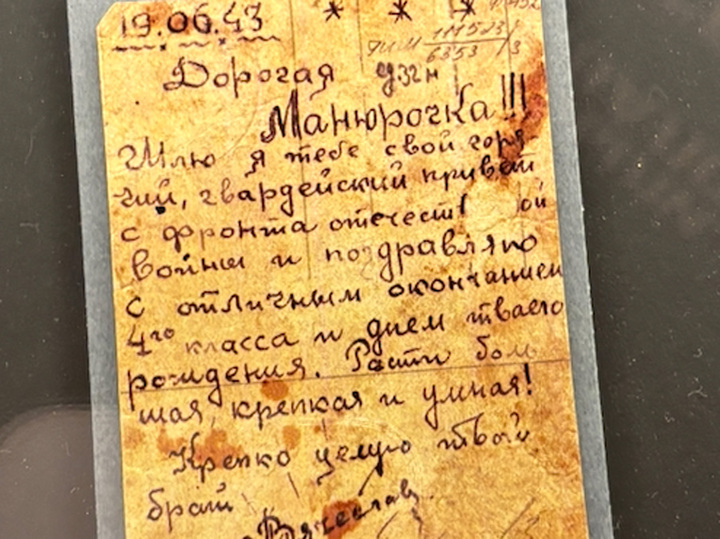 19.06.43 * * *
111523
6353 / 3
Дорогая
Манюрочка!!!
Шлю я тебе свой горя
чий, гвардейский привет
с фронта отечеств ой
войны и поздравляю
с отличным окончанием
4го класса и днем тваего
рождения. Расти боль
шая, крепкая и умная!
Крепко целую твой
брат
Вячеслав